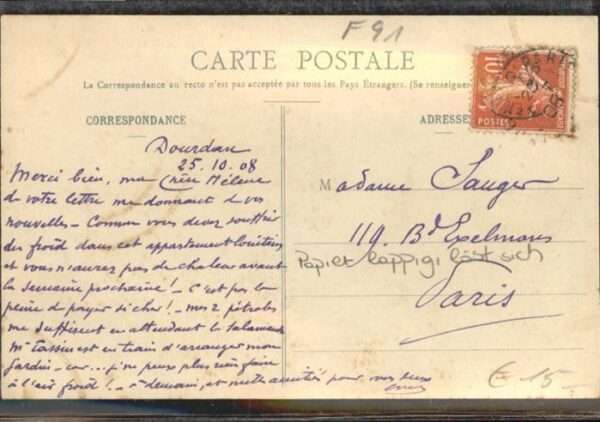 F 91
CARTE POSTALE
La Correspondance au recto n'est pas acceptée par tous les Pays Étrangers. (Se renseigner
CORRESPONDANCE
ADRESSE
10
POSTES
Dourdan
25.10.08
Merci bien, ma Chère Hélène
de votre lettre me donnant de vos
nouvelles - Comme vous devez souffrir
du froid dans cet appartement
et vous n'aurez pas de chaleur avant
la semaine prochaine! C'est pas la
peine de payer si cher! - mes 2 pétroles
me suffisent en attendant la salamandre
Mr Tassin est en train d'arranger mon
jardin - car... je ne peux plus rien faire
à l'air froid! - à demain, et mille amitiés pour vous deux
Madame Sauger
119. Bd Exelmans
Papier lappig, löst sich
Paris
€ 15.-